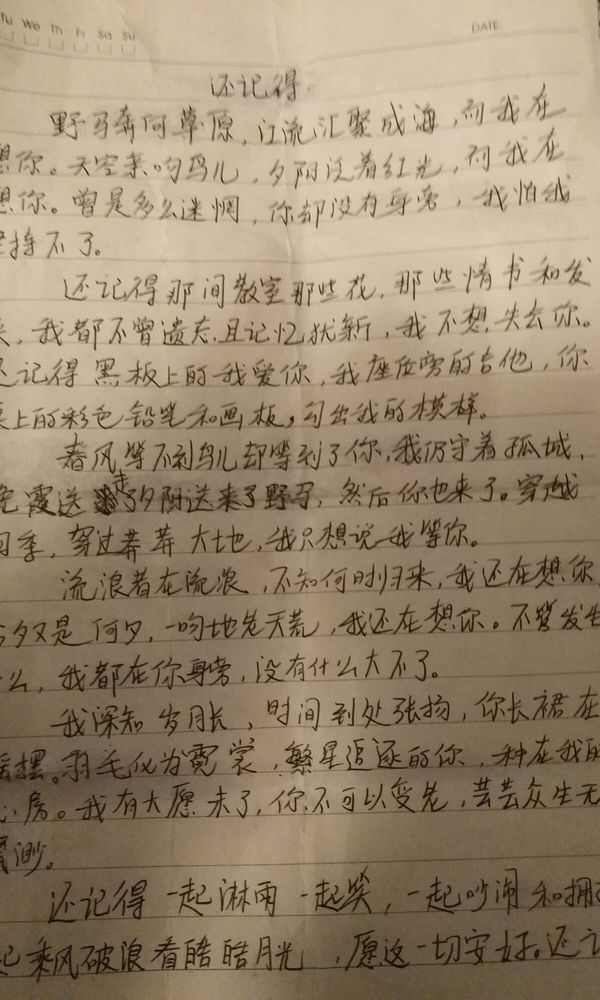 Tu We Th Fr Sa Su
DATE:
还记得
野马奔向草原，江流汇聚成海，而我在
想你。天空亲吻鸟儿，夕阳泛着红光，而我在
想你。曾是多么迷惘，你却没有身旁，我怕我
坚持不了。
还记得那间教室那些花，那些情书和发
，我都不曾遗忘且记忆犹新，我不想失去你。
还记得黑板上的我爱你，我座位旁的吉他，你
桌上的彩色铅笔和画板，勾出我的模样。
春风等不到鸟儿却等到了你，我仍守着孤城，
霞送走了夕阳送来了野马，然后你也来了。穿越
四季，穿过莽莽大地，我只想说我等你。
流浪者在流浪，不知何时归来，我还在想你
今夕又是何夕，一吻地老天荒，我还在想你。不管发生
什么，我都在你身旁，没有什么大不了。
我深知岁月长，时间到处张扬，你长裙在
摇摆。羽毛化为霓裳，繁星追逐的你，种在我的
心房。我有大愿未了，你不可以变老，芸芸众生无
渺。
还记得一起淋雨一起笑，一起吵闹和拥
起乘风破浪看皓皓月光，愿这一切安好。还记